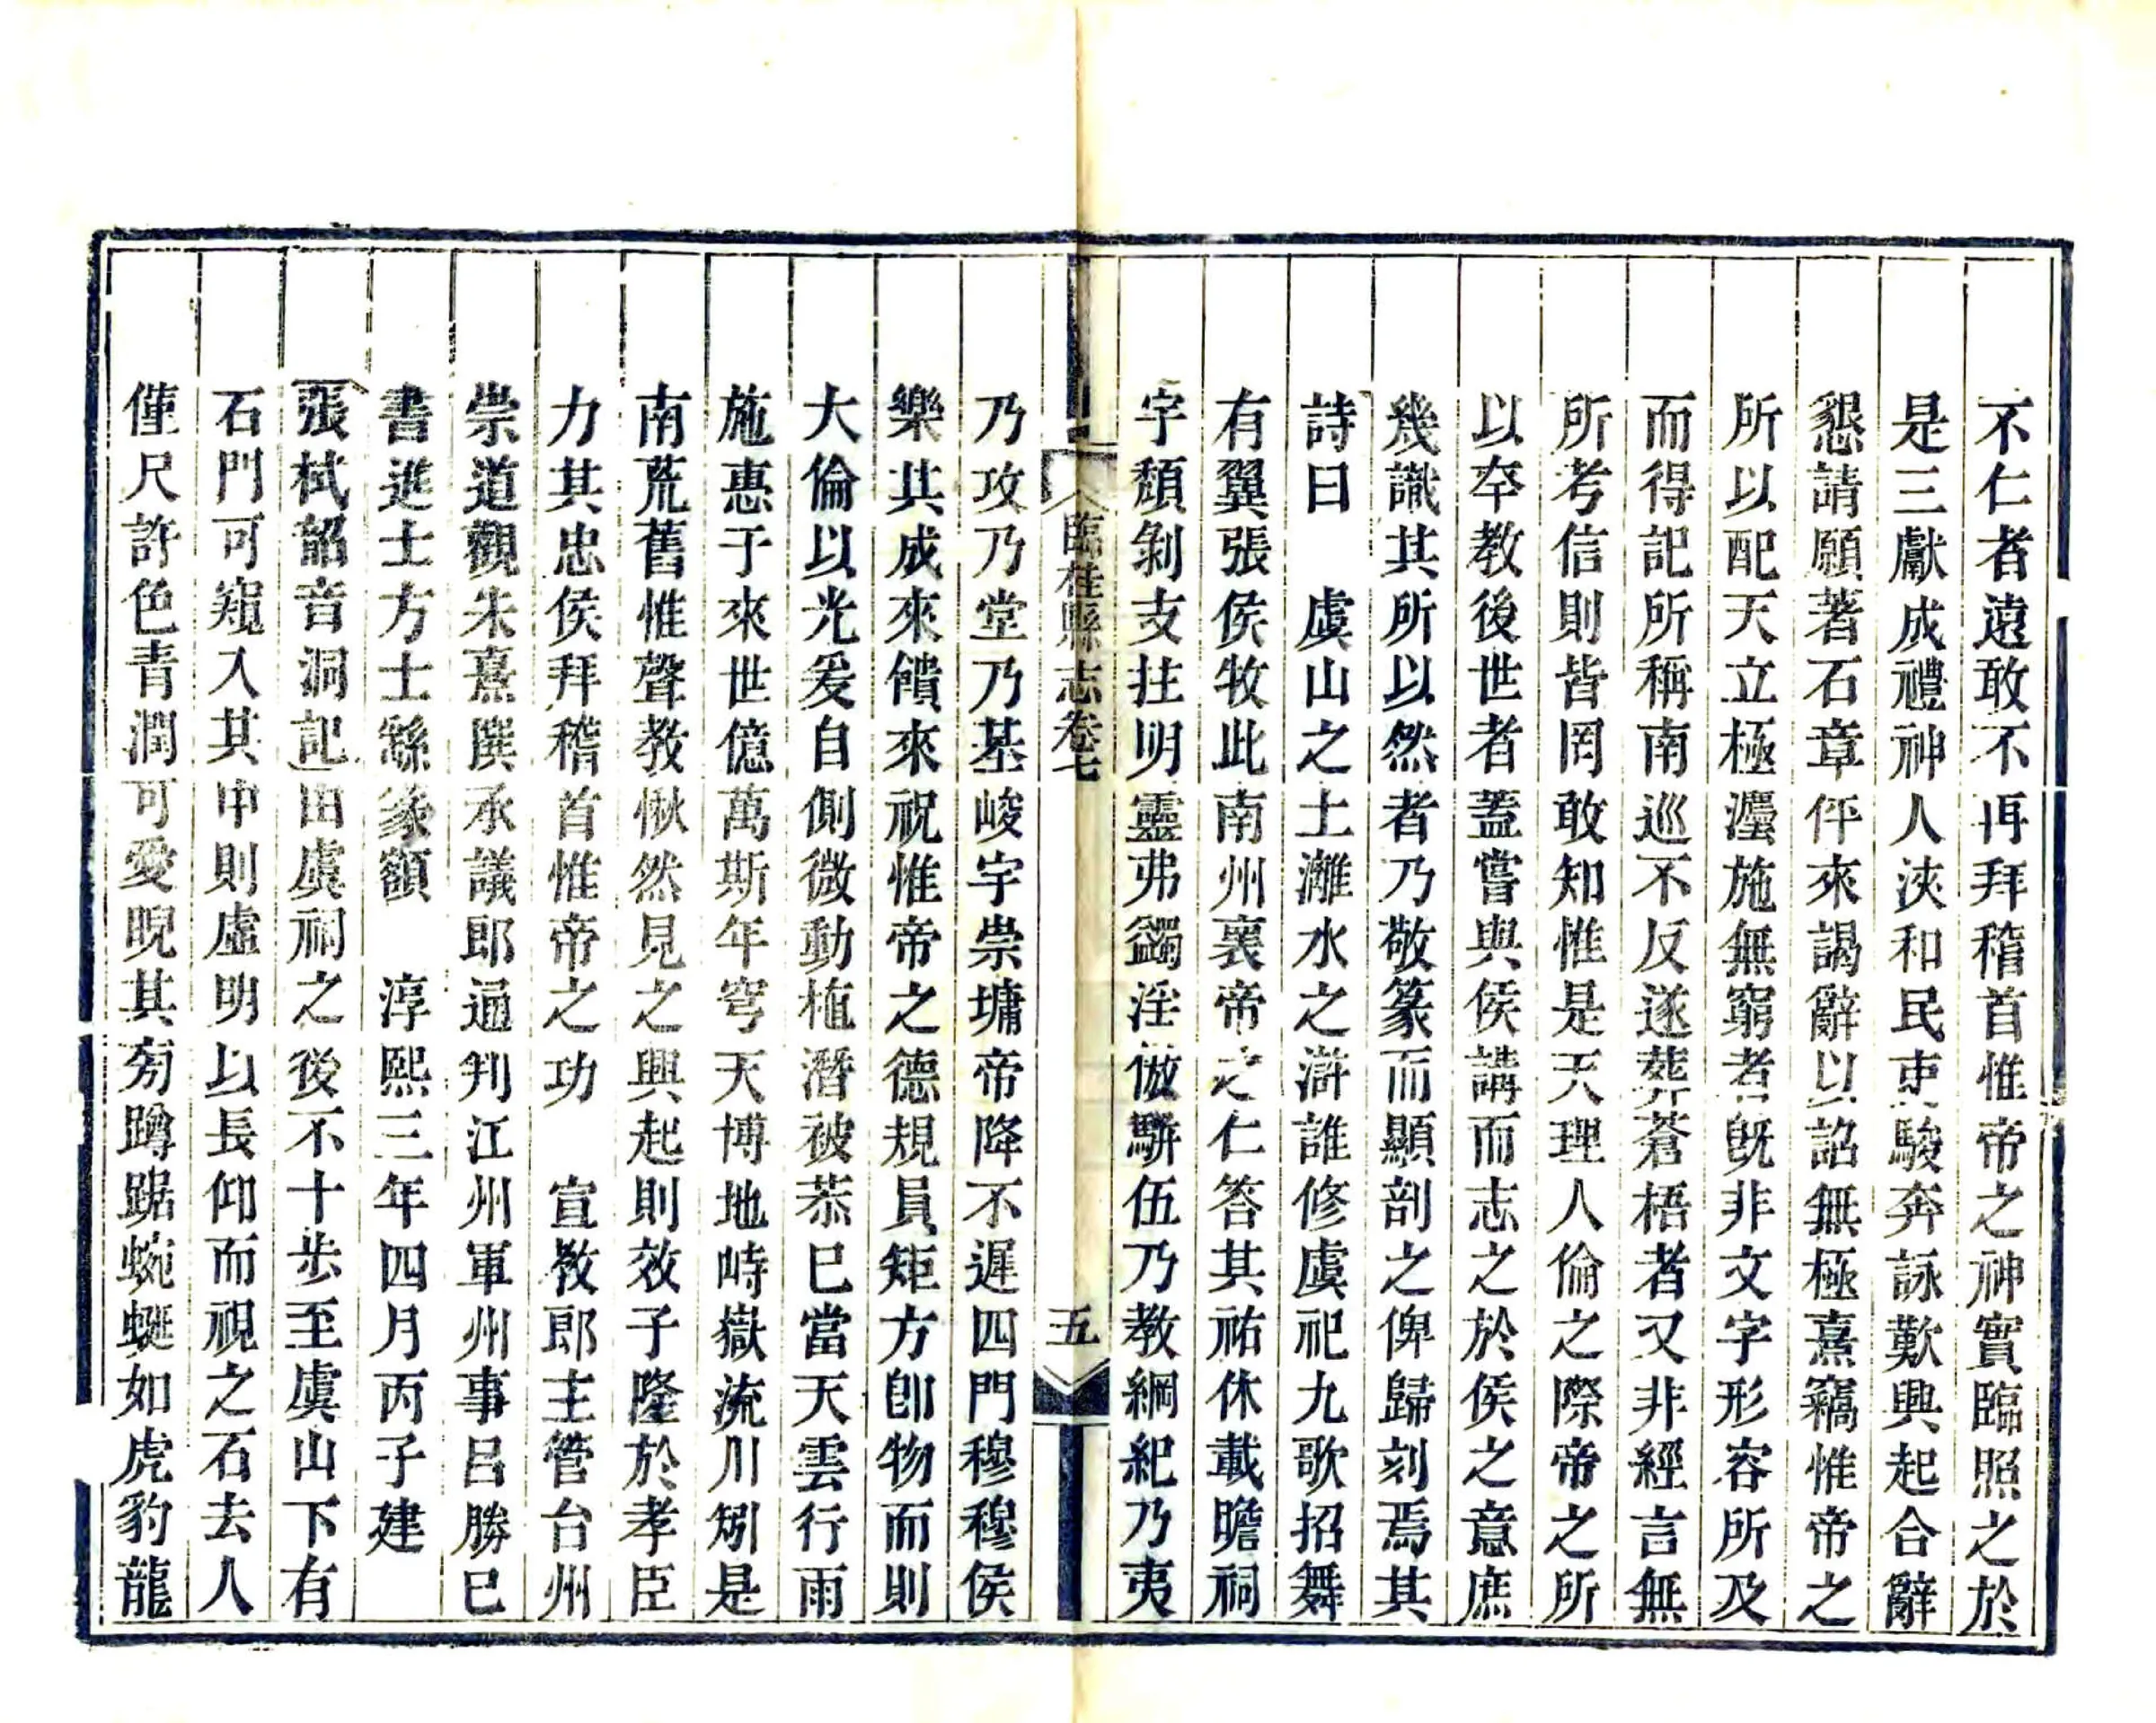 不仁者遠敢不再拜稽首惟帝之神實臨照之於
是三獻成禮神人浹和民吏駿奔詠歎興起合辭
懇請願著石章伻來謁辭以詔無極熹竊惟帝之
所以配天立極瀍施無窮者旣非文字形容所及
而得記所稱南巡不反遂葬蒼梧者又非經言無
所考信則皆罔敢知惟是天理人倫之際帝之所
以卒教後世者蓋嘗與侯講而志之於侯之意庶
幾識其所以然者乃敬篆而顯剖之俾歸刻焉其
詩曰　虞山之土灕水之滸誰修虞祀九歌招舞
有翼張侯牧此南州裏帝之仁答其祐休載瞻祠
宇頹剝支拄明靈弗蠲淫倣駢伍乃教綱紀乃夷
臨桂縣志卷七
五
乃攻乃堂乃基峻宇崇墉帝降不遲四門穆穆侯
樂其成來饋來祝惟帝之德規員矩方卽物而則
大倫以光爰自側微動植潛被恭巳當天雲行雨
施惠于來世億萬斯年穹天博地峙嶽流川矧是
南荒舊惟聲教愀然見之興起則效子隆於孝臣
力其忠侯拜稽首惟帝之功　宣教郎主管台州
崇道觀朱熹撰承議郎通判江州軍州事呂勝巳
書進士方士繇篆額　淳熙三年四月丙子建
張栻韶音洞記由虞祠之後不十步至虞山下有
石門可窺入其中則虛明以長仰而視之石去人
僅尺許色青潤可愛睨其旁蹲踞蜿蜒如虎豹龍